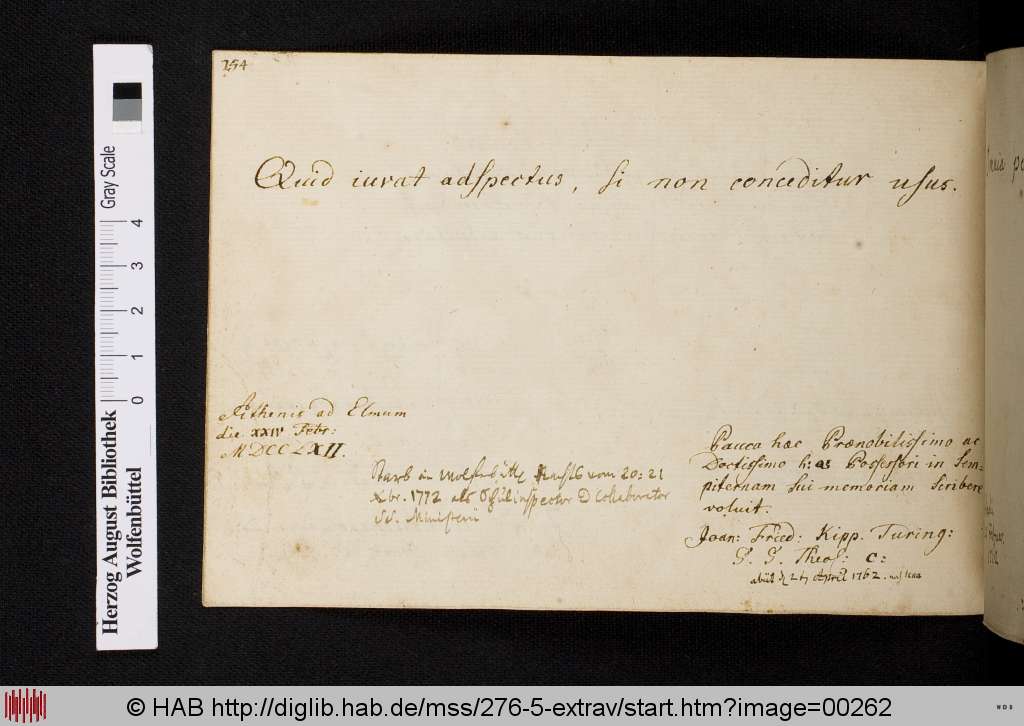 254
Quid iuvat adspectus, si non conceditur usus.
Athenis ad Elmum
die XXIV Febr:
MDCCLXII.
Starb in Wolfenbüttl Nachts vom 20=21
Xbr. 1772 als Schulinspector Collaborator
SS. Ministerii
Pauca hæc Prænobilissimo ac
Doctissimo h: as Possessori in sem-
piternam sui memoriam scribere
voluit.
Joan: Fried: Kipp. Turing:
G. G. Theol: C:
abiit d 24 April 1762. nach Jena
Herzog August Bibliothek
Wolfenbüttel
Gray Scale
0 1 2 3 4
© HAB http://diglib.hab.de/mss/276-5-extrav/start.htm?image=00262
HAB